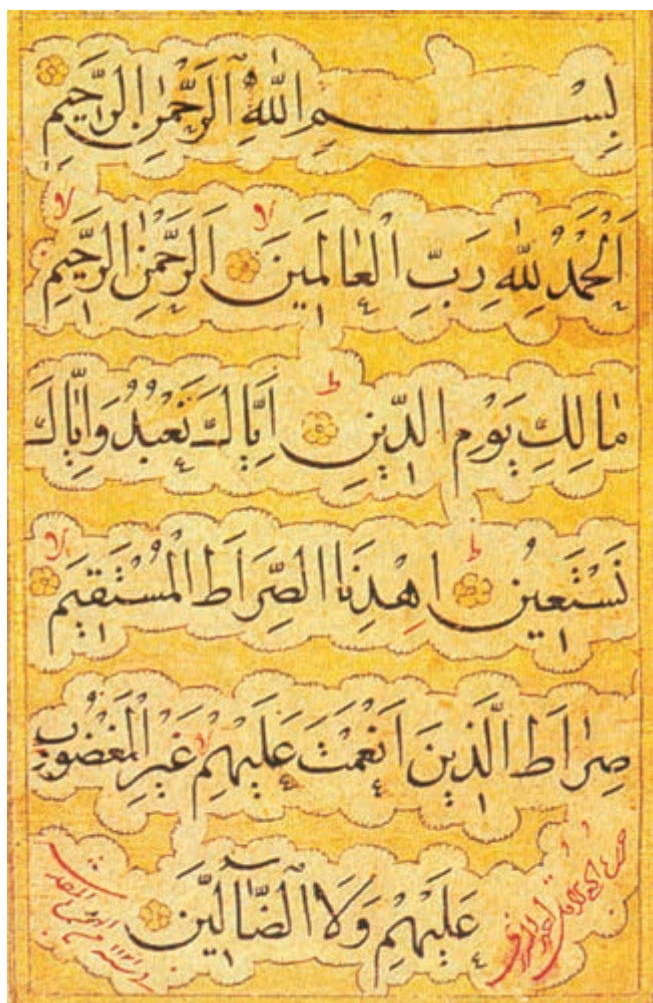 بِسْمِ اللّٰهِ الرَّحْمٰنِ الرَّحِيمِ
اَلْحَمْدُ لِلّٰهِ رَبِّ الْعَالَمِينَ اَلرَّحْمٰنِ الرَّحِيمِ
مَالِكِ يَوْمِ الدِّينِ اِيَّاكَ نَعْبُدُ وَاِيَّاكَ
نَسْتَعِينُ اِهْدِنَا الصِّرَاطَ الْمُسْتَقِيمَ
صِرَاطَ الَّذِينَ اَنْعَمْتَ عَلَيْهِمْ غَيْرِ الْمَغْضُوبِ
عَلَيْهِمْ وَلَا الضَّآلِّينَ